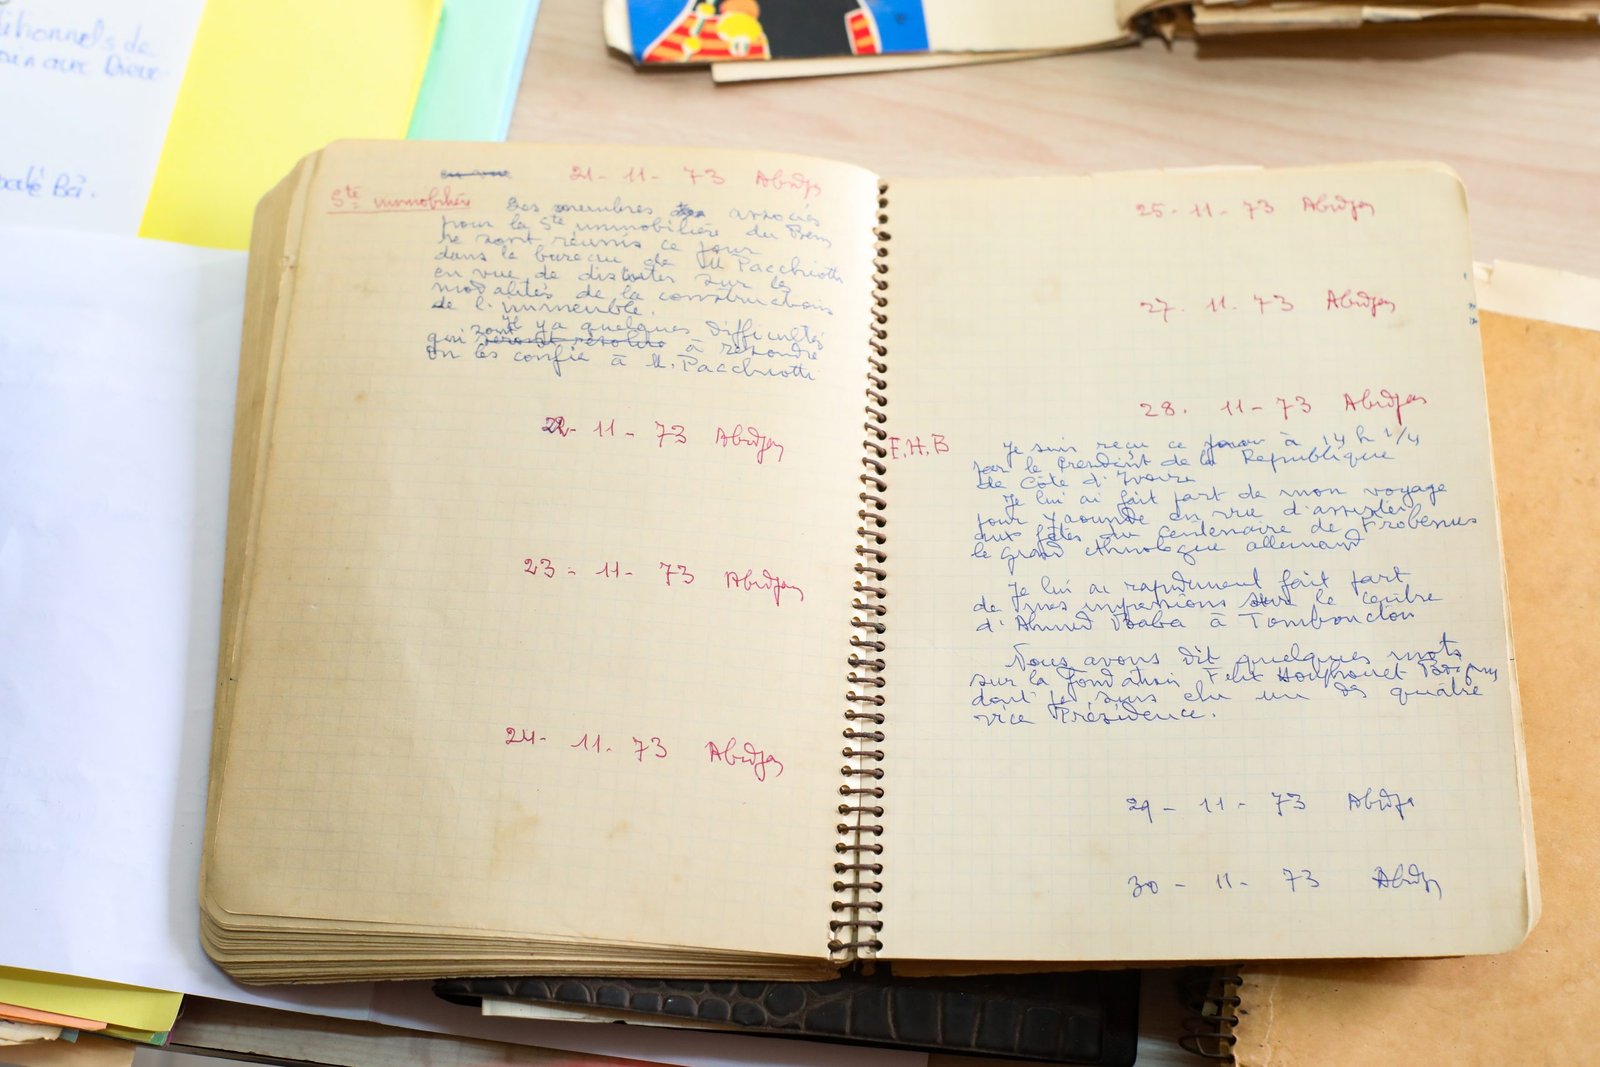 itionnels de
Bâ.
21 - 11 - 73 Abidjan
Sté immobilière
Les membres associés
pour la Sté immobilière du
se sont réunis ce jour
dans le bureau de M Pacchiotti
en vue de discuter sur les
modalités de la construction
de l'immeuble.
Il y a quelques difficultés
qui sont à résoudre
On les confie à M. Pacchiotti
22 - 11 - 73 Abidjan
23 - 11 - 73 Abidjan
24 - 11 - 73 Abidjan
25 - 11 - 73 Abidjan
27 . 11 - 73 Abidjan
28 . 11 - 73 Abidjan
F.H.B
Je suis reçu ce jour à 14 h 1/4
par le Président de la République
de Côte d'Ivoire
Je lui ai fait part de mon voyage
pour Yaoundé en vue d'assister
aux fêtes du centenaire de Frobenius
le grand ethnologue allemand
Je lui ai rapidement fait part
de mes impressions sur le centre
d'Ahmed Baba à Tombouctou
Nous avons dit quelques mots
sur la fondation Felix Houphouet Boigny
dont je suis élu un des quatre
vice Présidence.
29 - 11 - 73 Abidja
30 - 11 - 73 Abidj